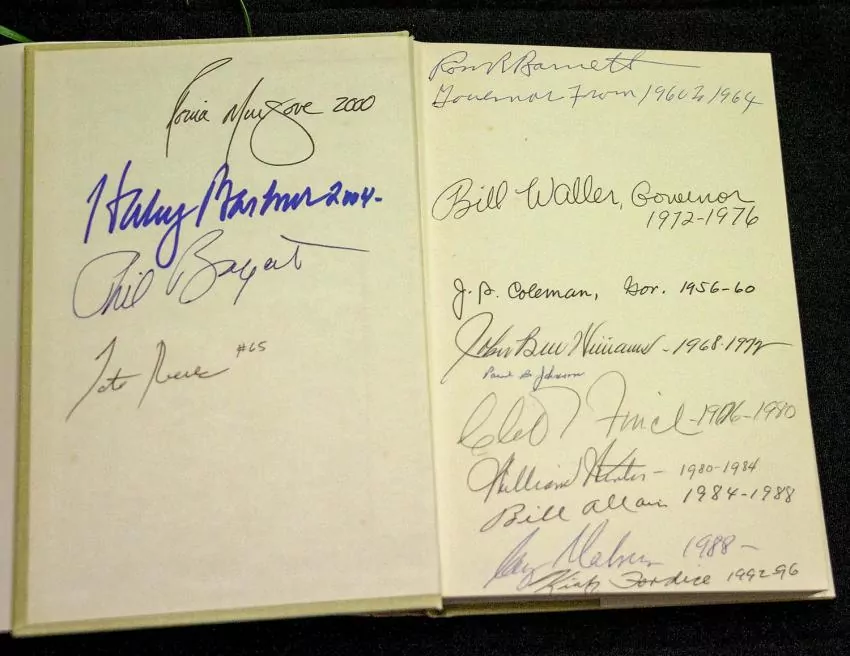 Ronnie Musgrove 2000
Haley Barbour 2004-
Phil Bryant
Tate Reeves #65
Ross R Barnett
Governor From 1960 to 1964
Bill Waller, Governor
1972-1976
J. P. Coleman, Gov. 1956-60
John Bell Williams - 1968-1972
Paul B Johnson
Cliff Finch - 1976-1980
William Winter - 1980-1984
Bill Allain 1984-1988
Ray Mabus 1988-
Kirk Fordice 1992-96